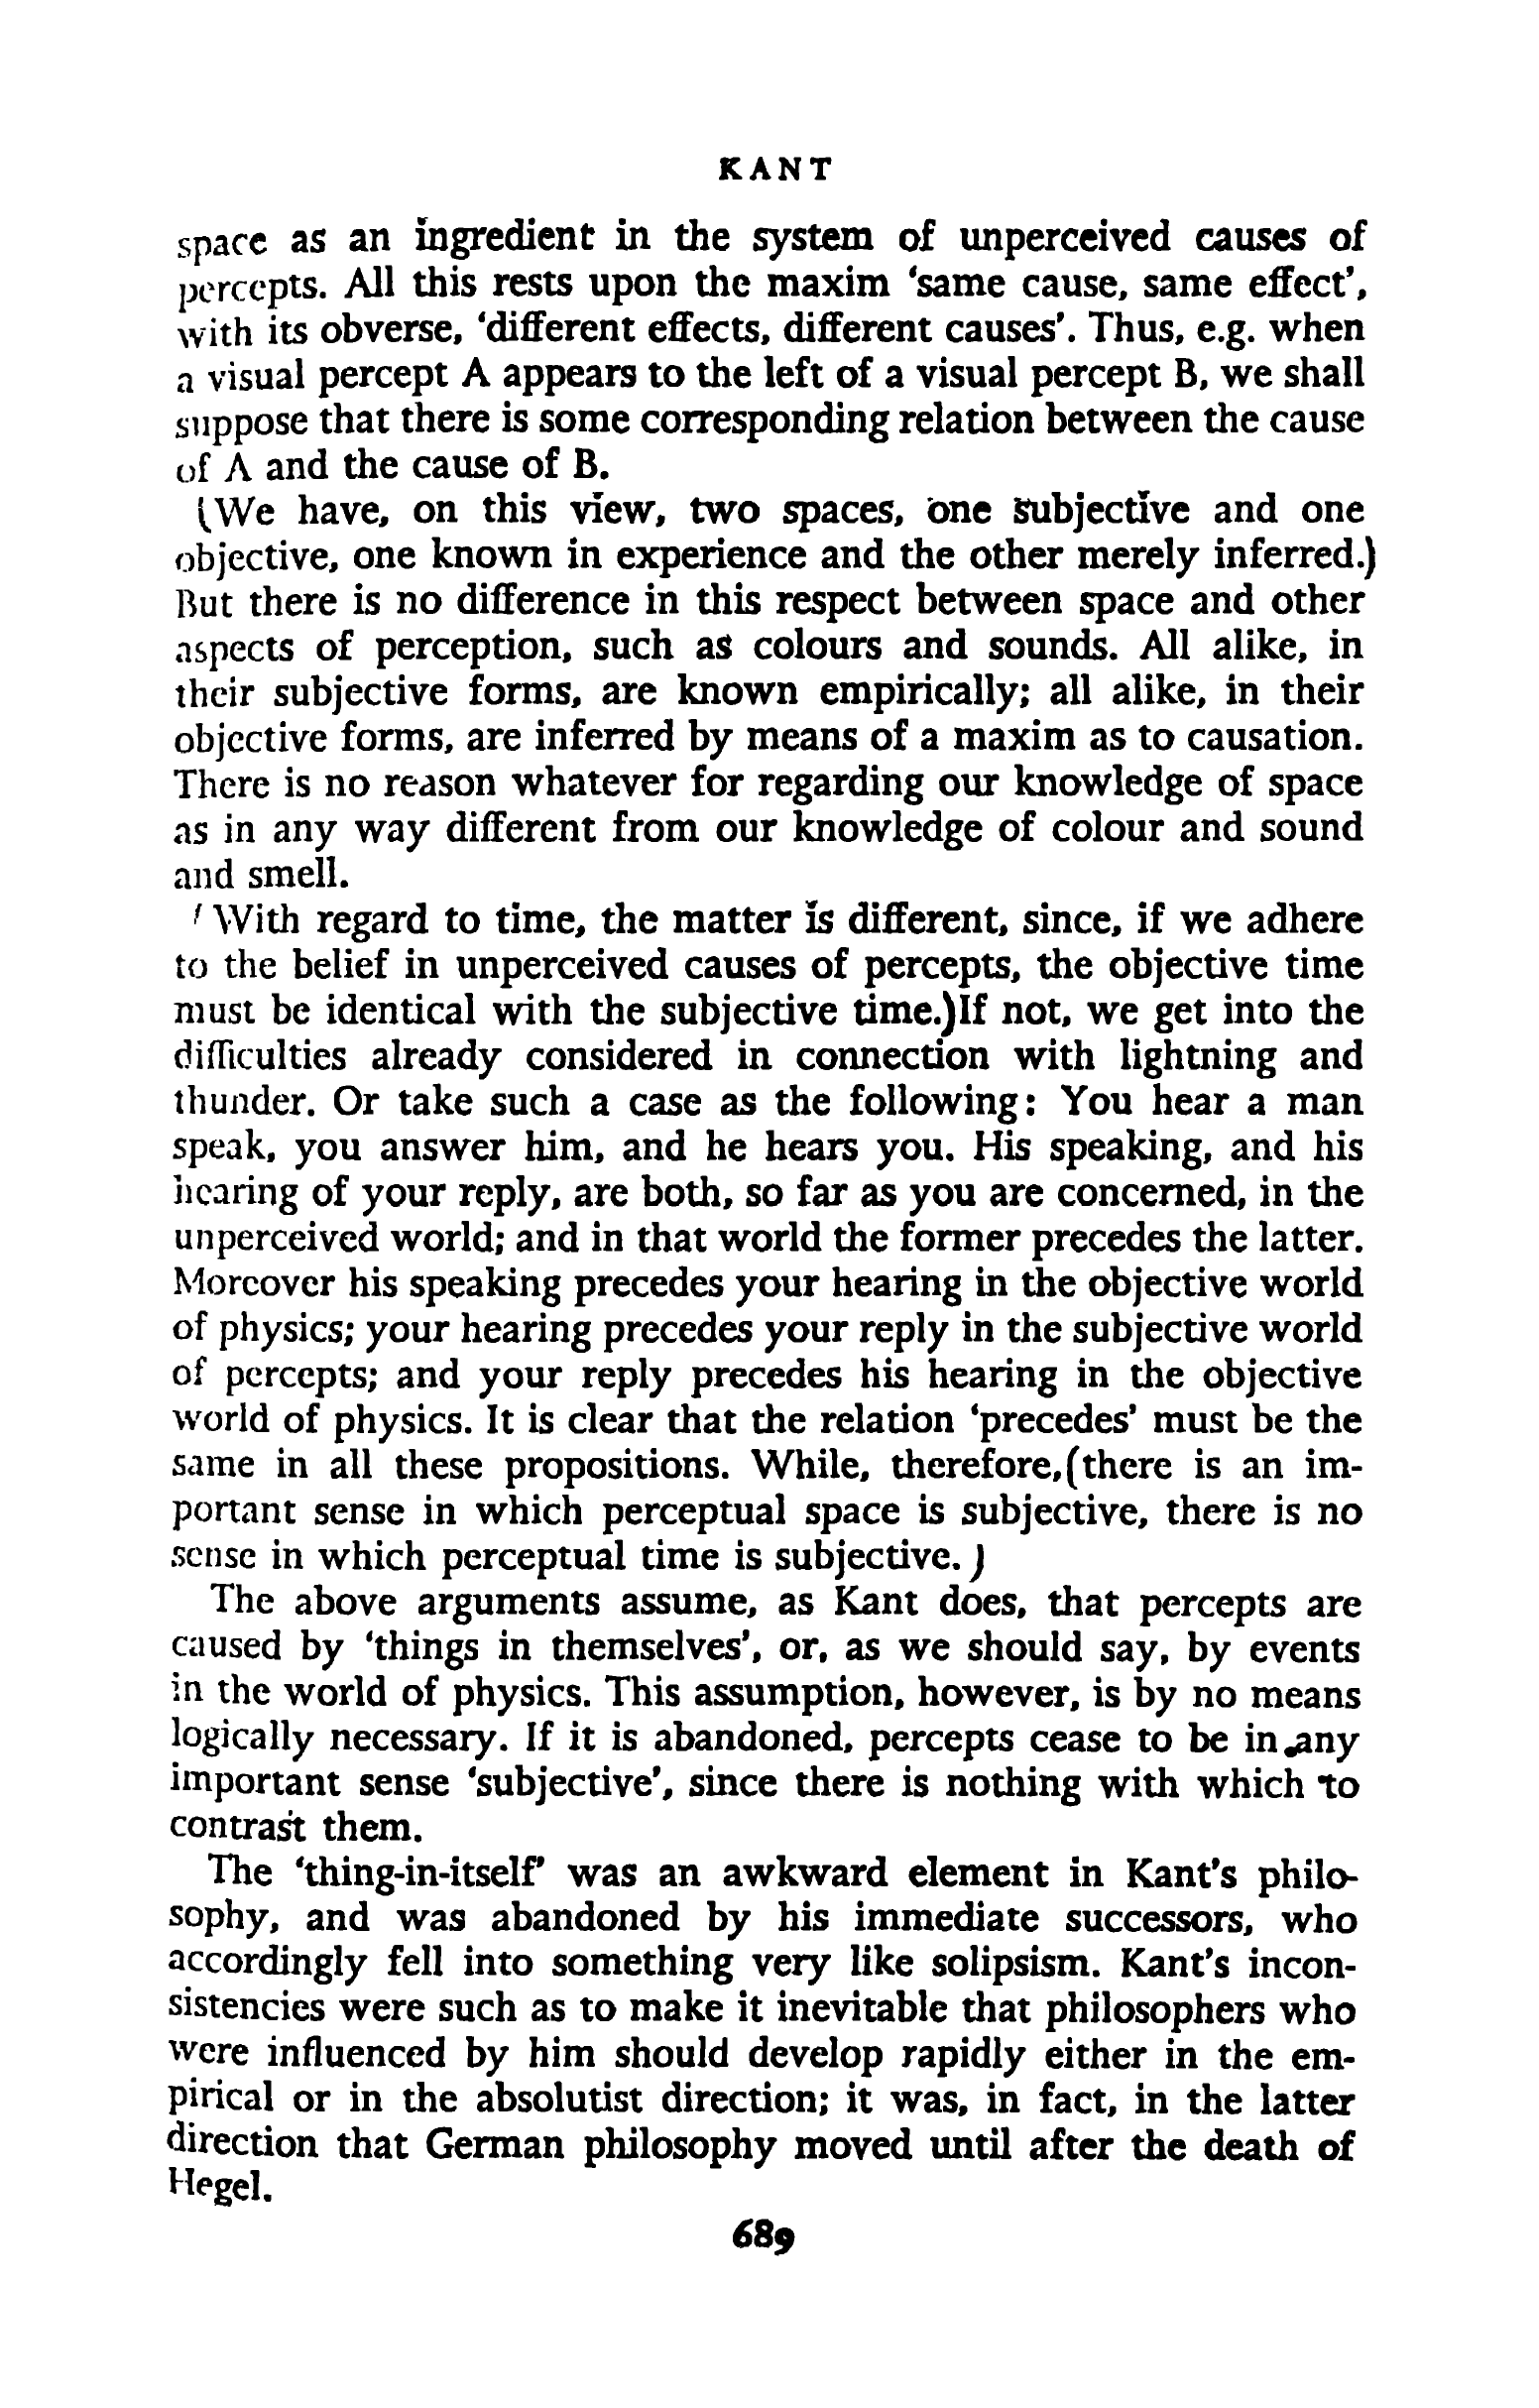 KANT
space as an ingredient in the system of unperceived causes of
percepts. All this rests upon the maxim 'same cause, same effect',
with its obverse, 'different effects, different causes'. Thus, e.g. when
a visual percept A appears to the left of a visual percept B, we shall
suppose that there is some corresponding relation between the cause
of A and the cause of B.
(We have, on this view, two spaces, one subjective and one
objective, one known in experience and the other merely inferred.)
But there is no difference in this respect between space and other
aspects of perception, such as colours and sounds. All alike, in
their subjective forms, are known empirically; all alike, in their
objective forms, are inferred by means of a maxim as to causation.
There is no reason whatever for regarding our knowledge of space
as in any way different from our knowledge of colour and sound
and smell.
(With regard to time, the matter is different, since, if we adhere
to the belief in unperceived causes of percepts, the objective time
must be identical with the subjective time.)If not, we get into the
difficulties already considered in connection with lightning and
thunder. Or take such a case as the following: You hear a man
speak, you answer him, and he hears you. His speaking, and his
hearing of your reply, are both, so far as you are concerned, in the
unperceived world; and in that world the former precedes the latter.
Moreover his speaking precedes your hearing in the objective world
of physics; your hearing precedes your reply in the subjective world
of percepts; and your reply precedes his hearing in the objective
world of physics. It is clear that the relation 'precedes' must be the
same in all these propositions. While, therefore,(there is an im-
portant sense in which perceptual space is subjective, there is no
sense in which perceptual time is subjective.)
The above arguments assume, as Kant does, that percepts are
caused by 'things in themselves', or, as we should say, by events
in the world of physics. This assumption, however, is by no means
logically necessary. If it is abandoned, percepts cease to be in any
important sense 'subjective', since there is nothing with which to
contrast them.
The 'thing-in-itself' was an awkward element in Kant's philo-
sophy, and was abandoned by his immediate successors, who
accordingly fell into something very like solipsism. Kant's incon-
sistencies were such as to make it inevitable that philosophers who
were influenced by him should develop rapidly either in the em-
pirical or in the absolutist direction; it was, in fact, in the latter
direction that German philosophy moved until after the death of
Hegel.
689